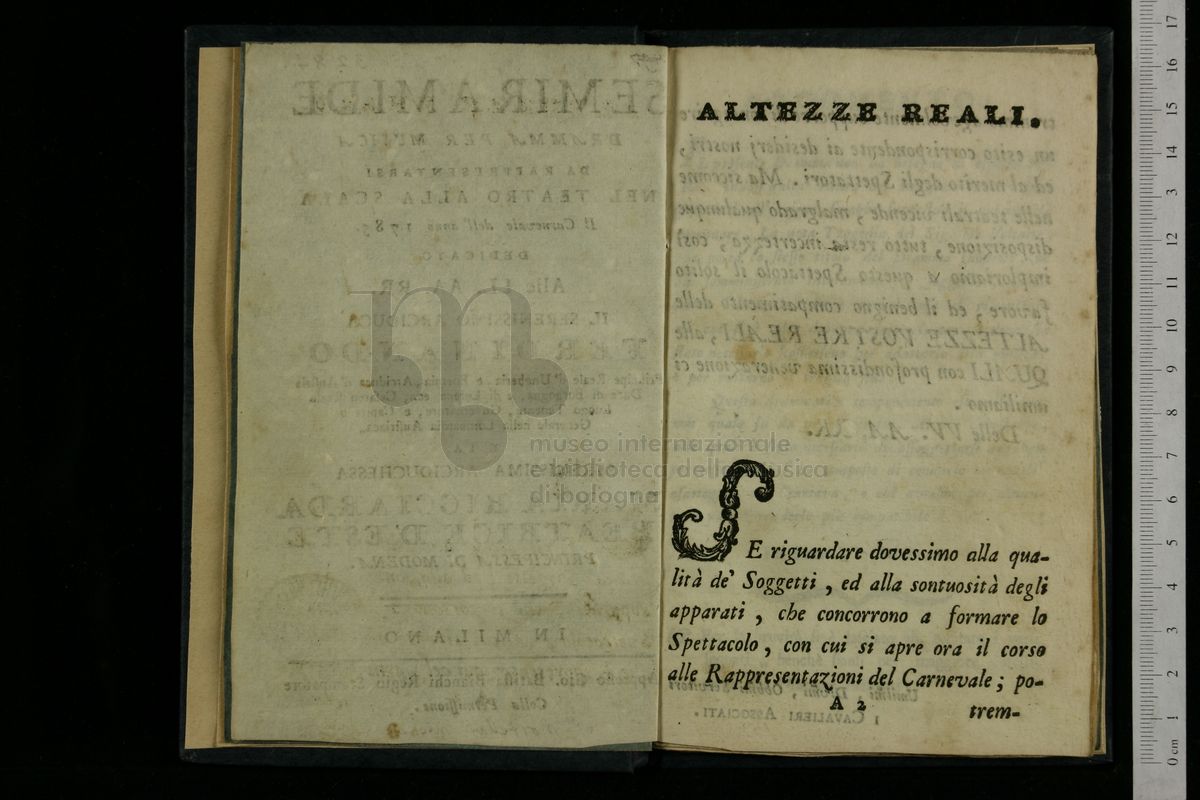 ALTEZZE REALI.
SE riguardare dovessimo alla qua-
lità de' Soggetti, ed alla sontuosità degli
apparati, che concorrono a formare lo
Spettacolo, con cui si apre ora il corso
alle Rappresentazioni del Carnevale; po-
A 2
trem-
museo internazionale
e biblioteca della musica
di bologna
17
16
15
14
13
12
11
10
9
8
7
6
5
4
3
2
1
0 cm